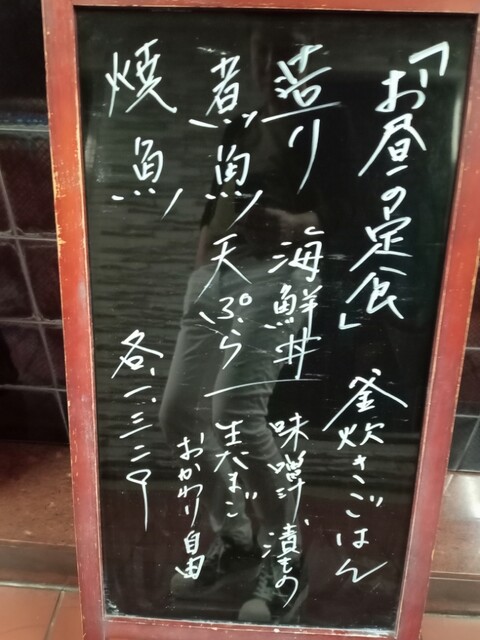 「お昼の定食」 釜炊きごはん
造り 海鮮丼 味噌汁、漬もの
煮魚 天ぷら 生たまご
おかわり自由
焼魚 各、一、三二〇